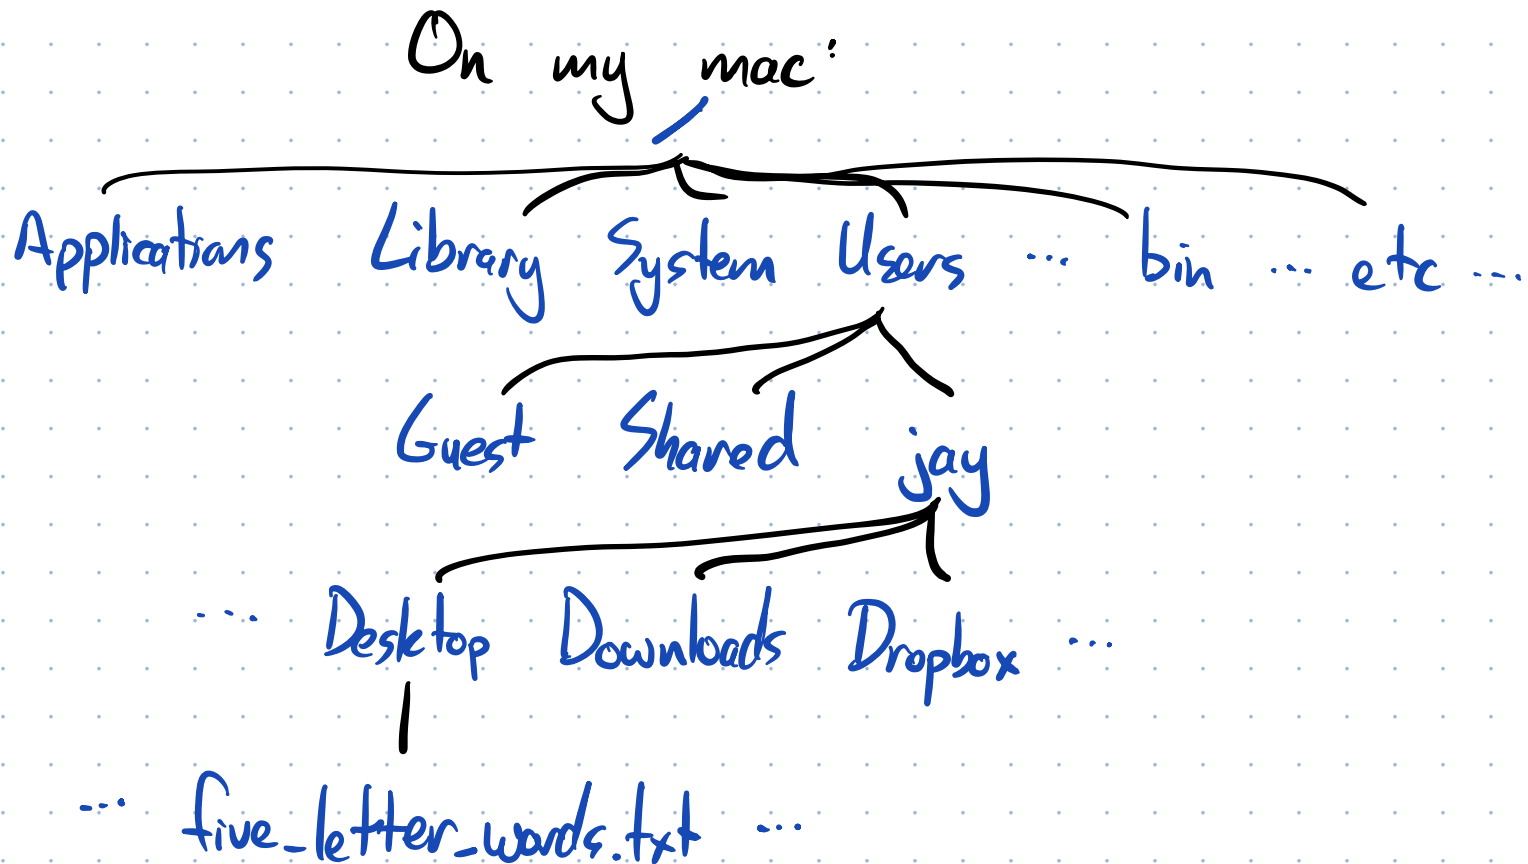 On my mac:
/
Applications Library System Users ... bin ... etc ...
Guest Shared jay
... Desktop Downloads Dropbox ...
... five_letter_words.txt ...